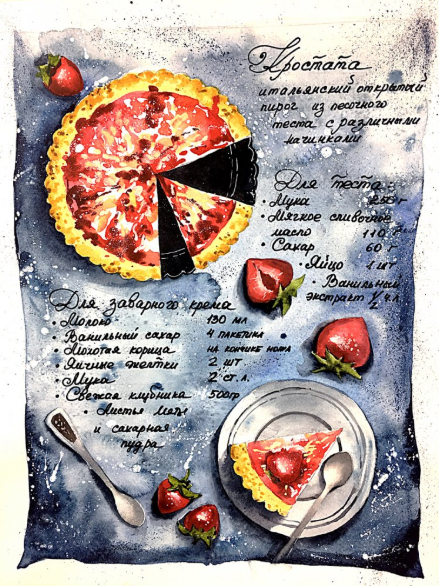 Кростата
итальянский открытый
пирог из песочного
теста с различными
начинками
Для теста:
• Мука 250 г
• Мягкое сливочное
масло 110 г
• Сахар 60 г
• Яйцо 1 шт
• Ванильный
экстракт ½ ч.л.
Для заварного крема
• Молоко 130 мл
• Ванильный сахар 4 пакетика
• Молотая корица на кончике ножа
• Яичные желтки 2 шт
• Мука 2 ст.л.
• Свежая клубника 500гр
• Листья мяты
и сахарная
пудра